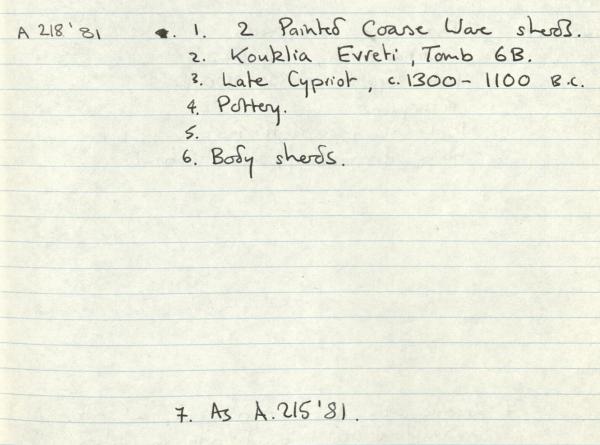 A 218'81 1. 2 Painted Coarse Ware sherds.
2. Kouklia Evreti, Tomb 6B.
3. Late Cypriot, c.1300-1100 B.C.
4. Pottery.
5.
6. Body sherds.
7. As A.215'81.